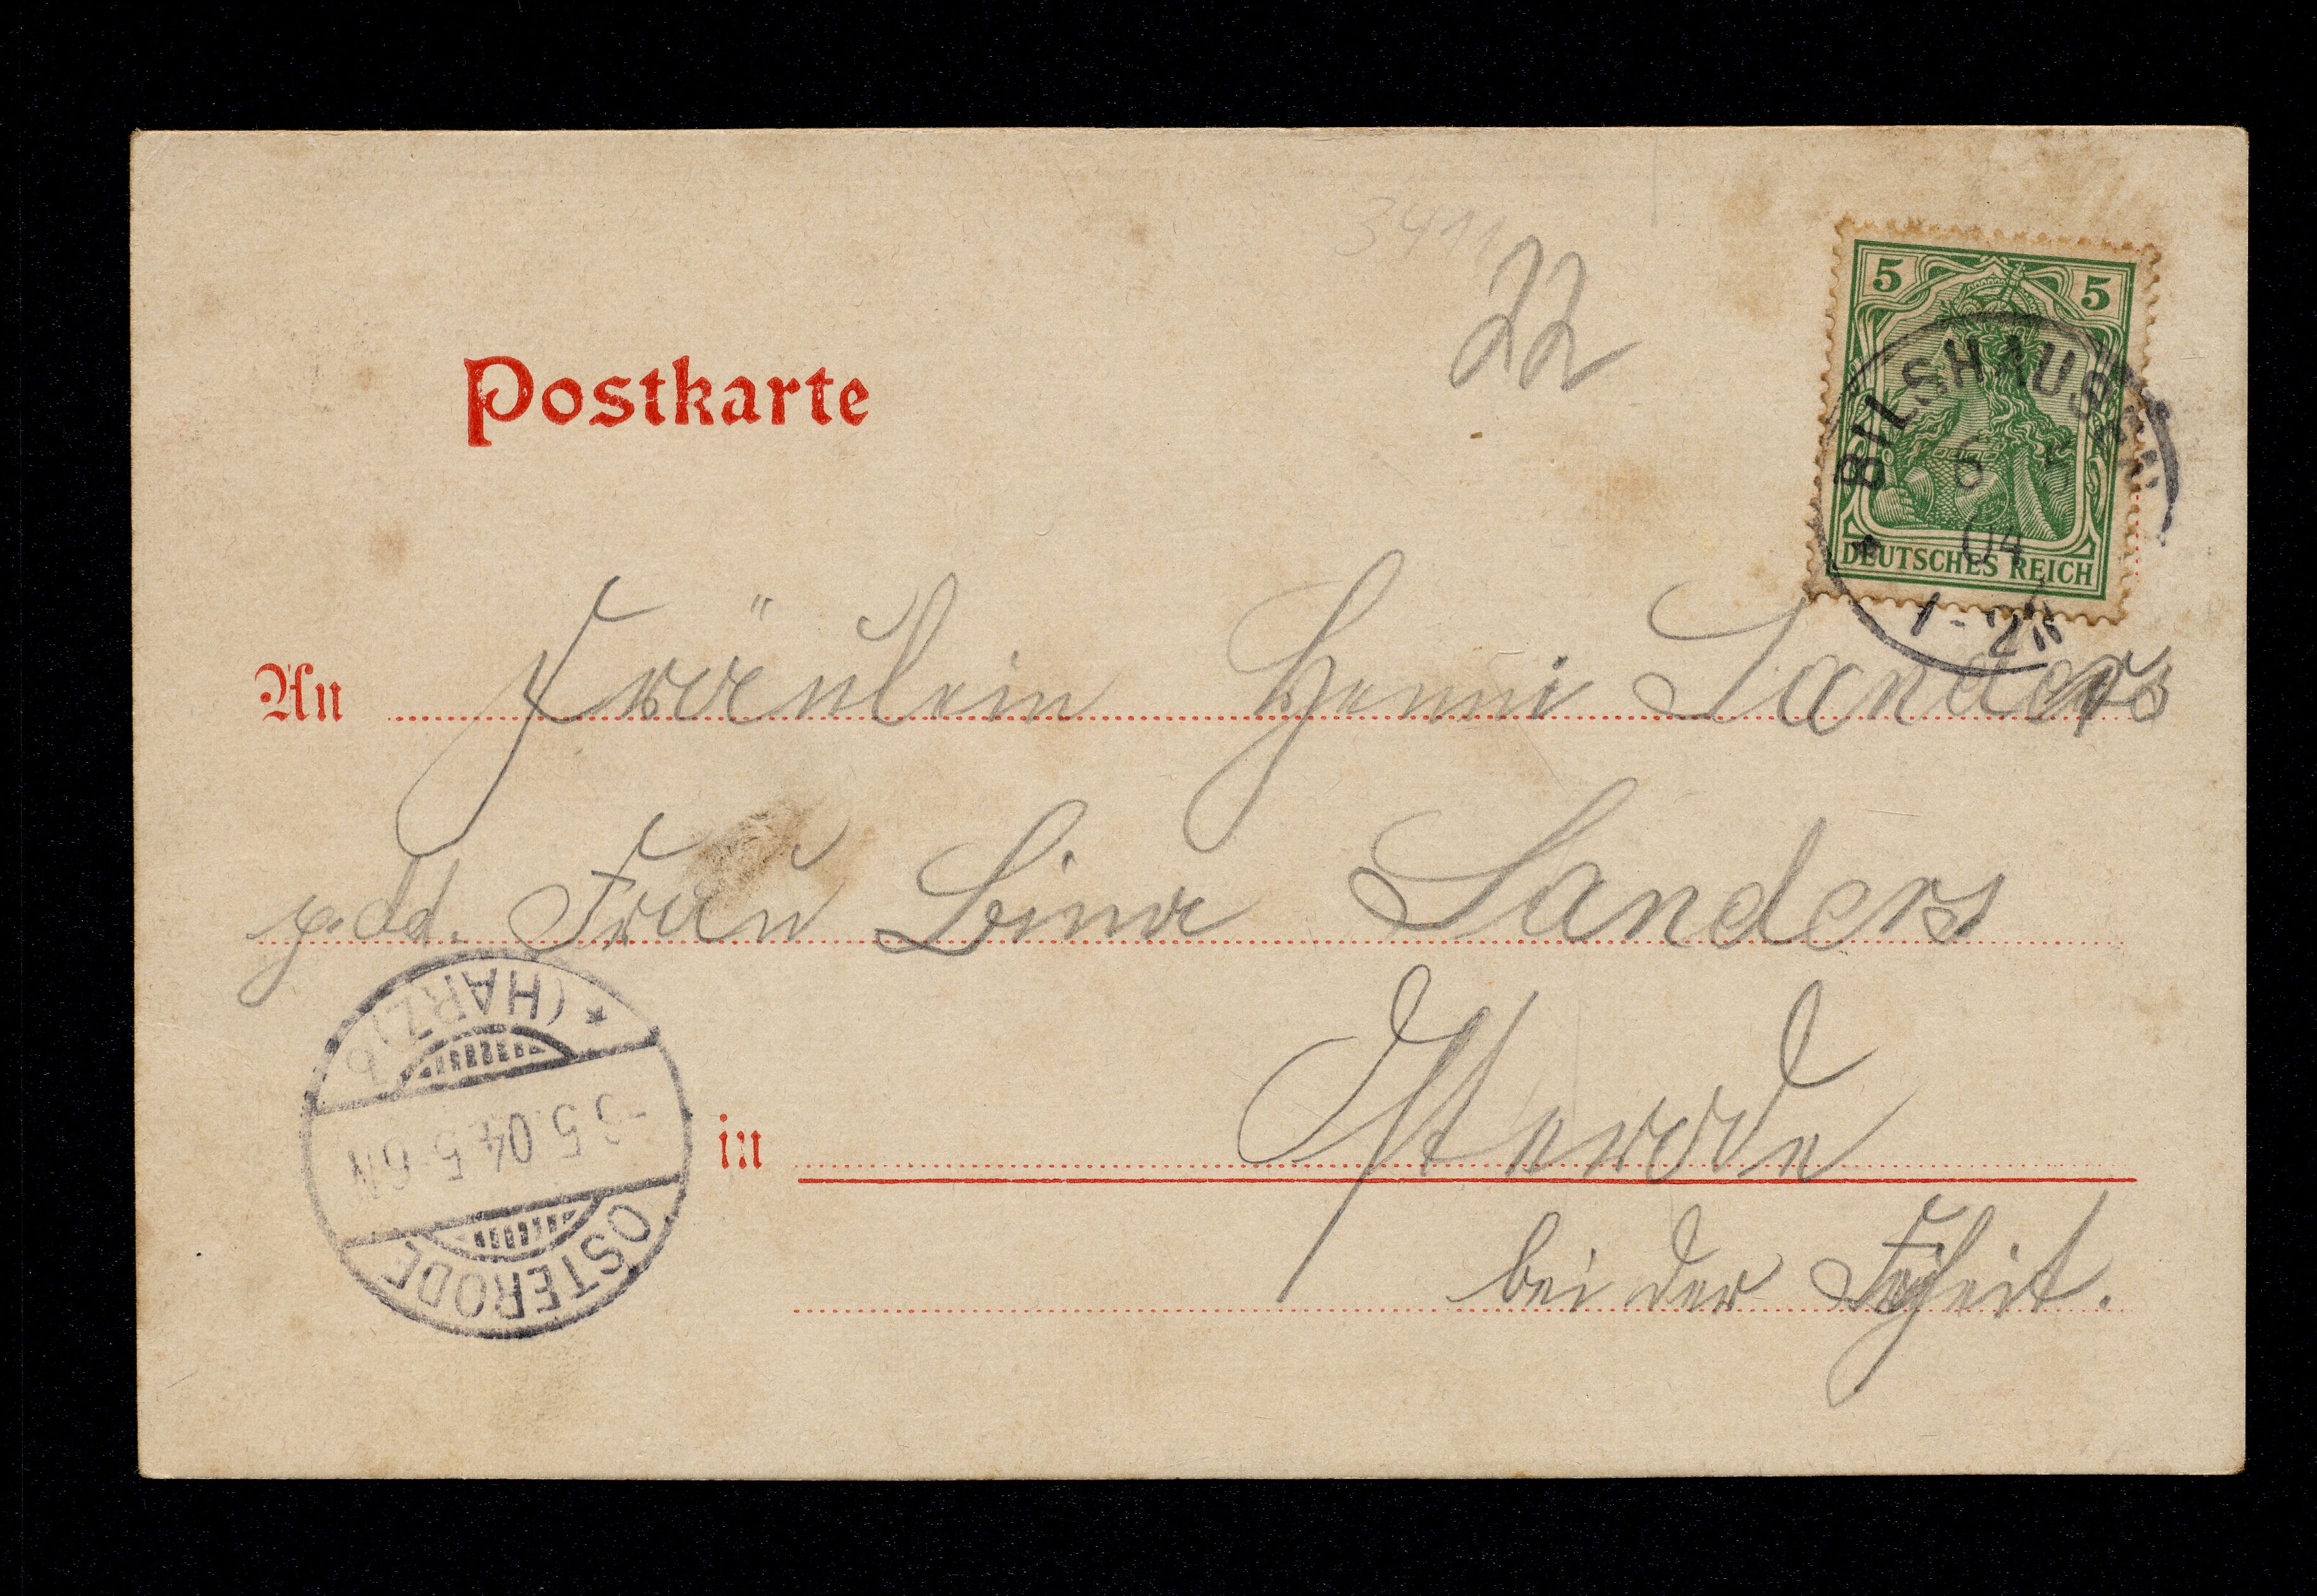 3411
22
5 5
BILSHAUSEN
04
1-2N
DEUTSCHES REICH
Postkarte
An Fräulein Henni Sanders
p. Ad. Frau Lina Sanders
in Osterode
bei der Freiheit.
* (HARZ) b
5.04.5-6N
OSTERODE